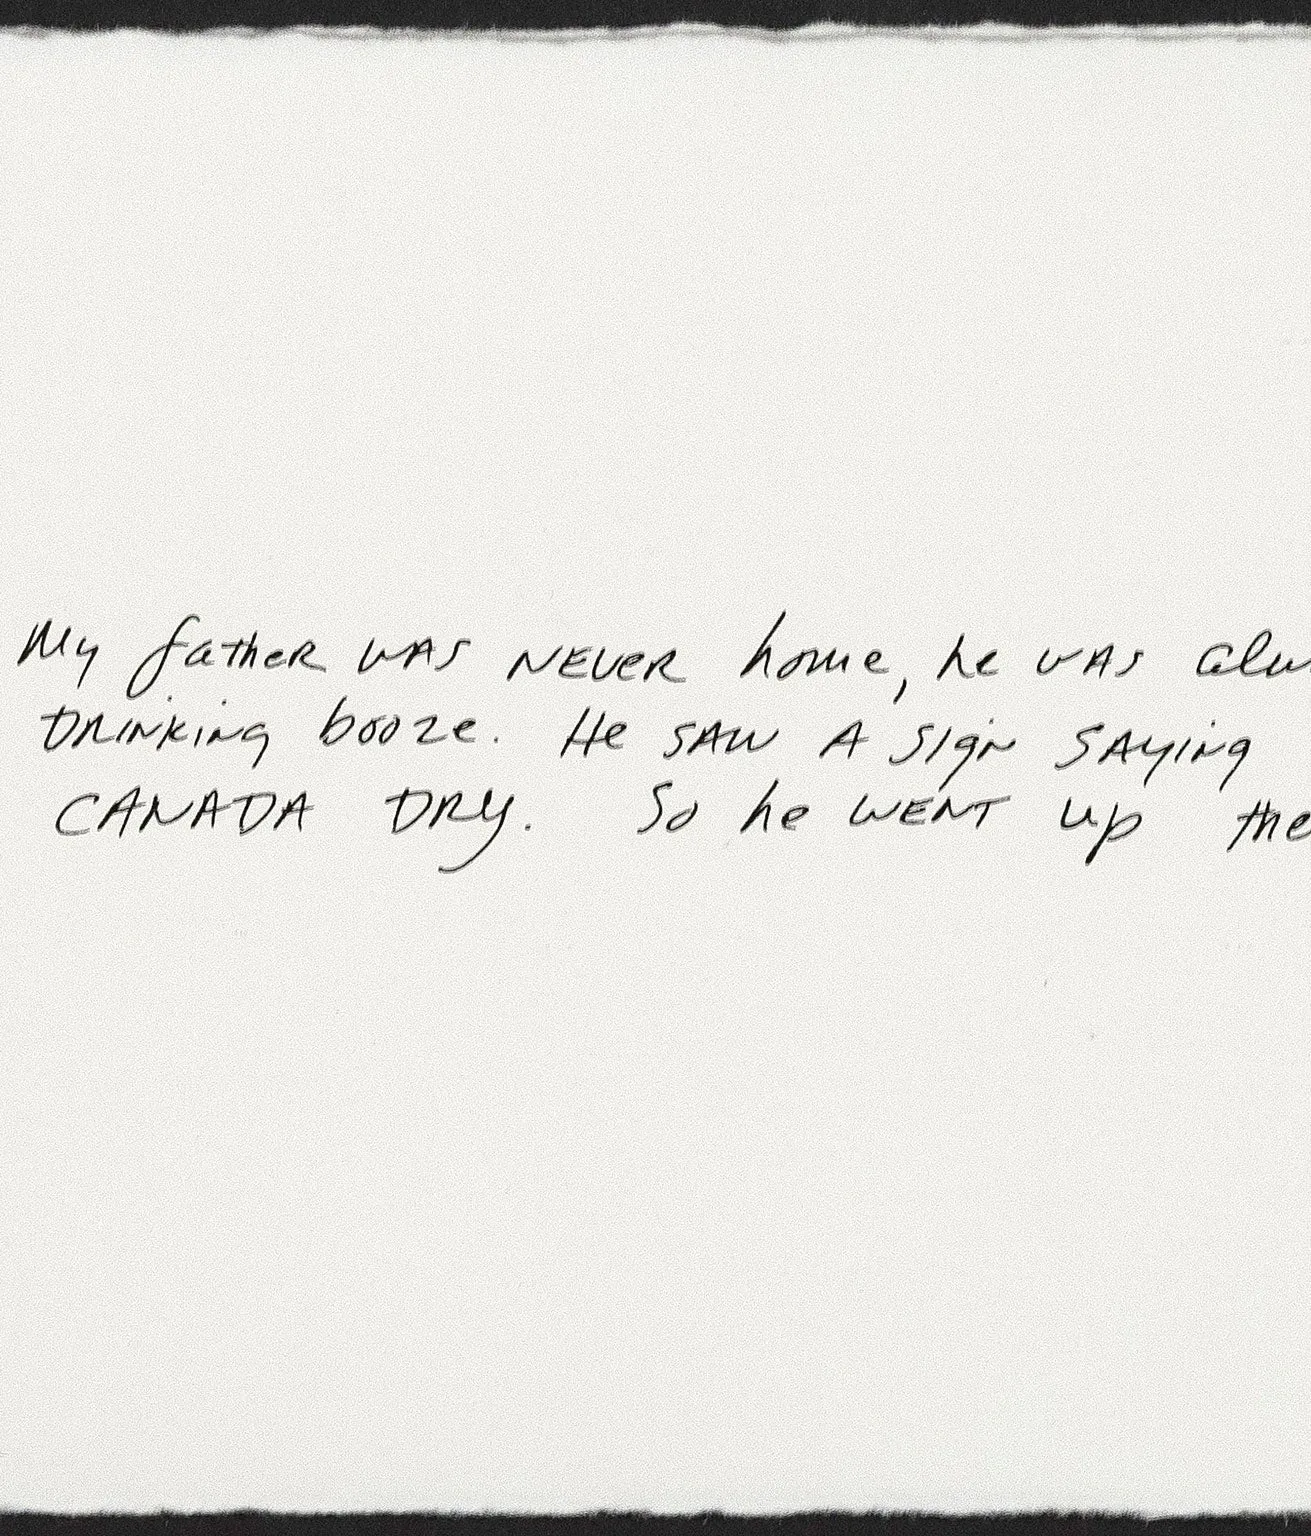 My father was never home, he was alw
drinking booze. He saw a sign saying
CANADA DRY. So he went up the